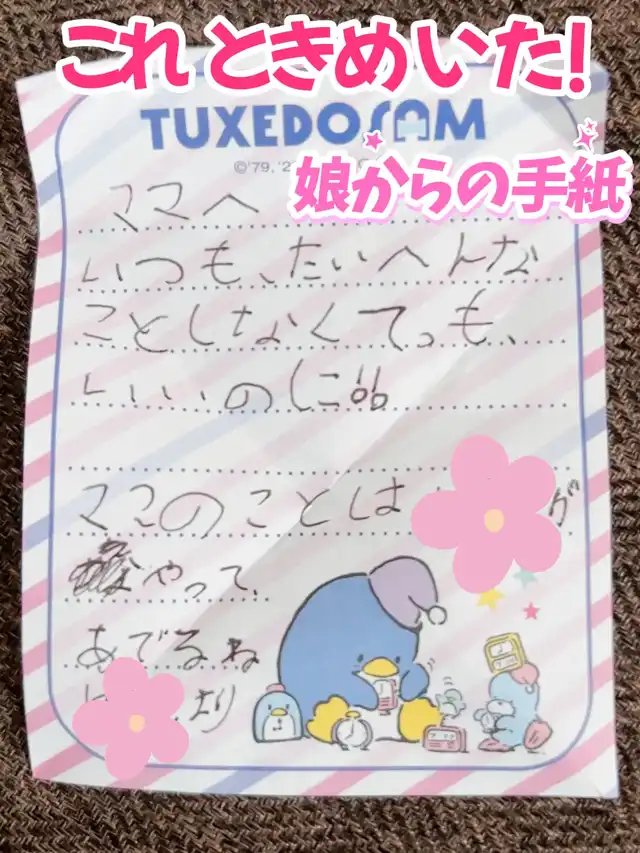 これときめいた!
TUXEDOSAM
©'79, '2
娘からの手紙
ママへ
いつも、たいへんな
ことしなくてっも、
いいのに!!
ママのことは
が
やって、
あでるね
より